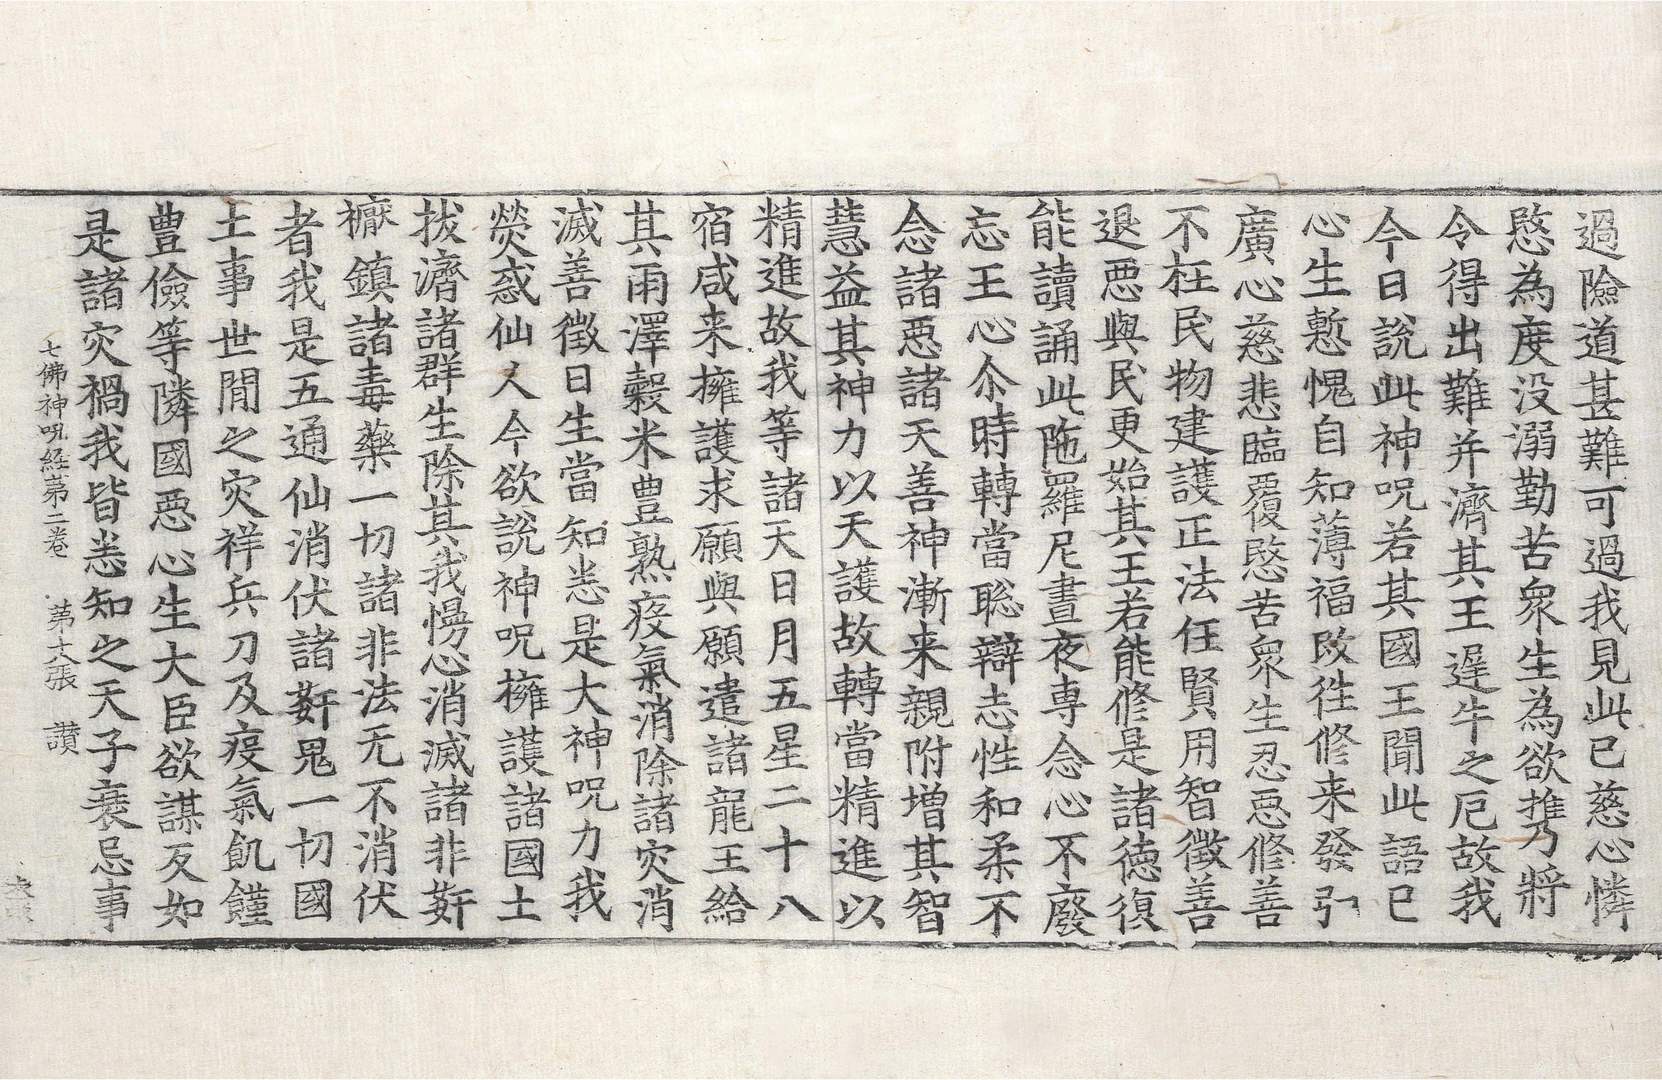 過險道甚難可過我見此已慈心憐
愍為度没溺勤苦衆生為欲推乃將
令得出難并濟其王遅牛之厄故我
今日說此神呪若其國王聞此語已
心生慙愧自知薄福改徃修来發引
廣心慈悲臨覆愍苦衆生忍惡修善
不枉民物建護正法任賢用智徴善
退惡與民更始其王若能修是諸徳復
能讀誦此陁羅尼晝夜専念心不廢
忘王心尒時轉當聡辯志性和柔不
念諸惡諸天善神漸来親附增其智
慧益其神力以天護故轉當精進以
精進故我等諸天日月五星二十八
宿咸来擁護求願與願遣諸龍王給
其雨澤糓米豊熟疫氣消除諸灾消
滅善徴日生當知悉是大神呪力我
熒惑仙人今欲說神呪擁護諸國土
拔濟諸群生除其我慢心消滅諸非姧
禳鎮諸毒藥一切諸非法无不消伏
者我是五通仙消伏諸姧鬼一切國
土事世間之灾祥兵刀及疫氣飢饉
豊儉等隣國惡心生大臣欲謀反如
是諸灾禍我皆悉知之天子衰忌事
七佛神呪経第二卷 第十六張 讃